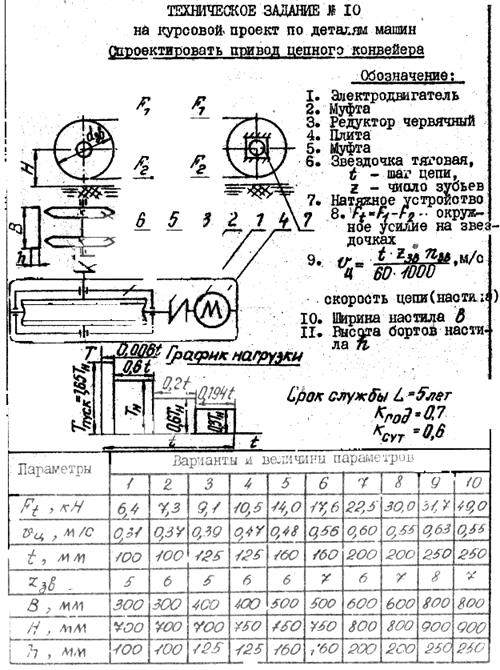 ТЕХНИЧЕСКОЕ ЗАДАНИЕ № 10
на курсовой проект по деталям машин
Спроектировать привод цепного конвейера
Обозначение:
1. Электродвигатель
2. Муфта
3. Редуктор червячный
4. Плита
5. Муфта
6. Звездочка тяговая,
t - шаг цепи,
z - число зубьев
7. Натяжное устройство
8. Ft=F1-F2 - окруж-
ное усилие на звез-
дочках
9. vц = t·zзв nзв / 60·1000, м/с
скорость цепи(настила)
10. Ширина настила B
11. Высота бортов насти-
ла h
F1 F1
dзв
H
F2 F2
B
h
6 5 3 2 1 4 7
M
График нагрузки
T
0,006t
0,6t
0,2t
0,194t
Tпуск=1,65Tн
Tн
0,6Tн
t t
Срок службы L=5лет
Kгод=0,7
Kсут=0,6
Параметры Варианты и величины параметров
1 2 3 4 5 6 7 8 9 10
Ft, кН 6,4 7,3 9,1 10,5 14,0 17,6 22,5 30,0 31,7 49,0
vц, м/с 0,31 0,37 0,39 0,47 0,48 0,56 0,60 0,55 0,63 0,55
t, мм 100 100 125 125 160 160 200 200 250 250
zзв 5 6 5 6 6 7 6 7 8 7
B, мм 300 300 400 400 500 500 600 600 800 800
H, мм 700 700 700 750 750 750 800 800 900 900
h, мм 100 100 125 125 160 160 200 200 250 250